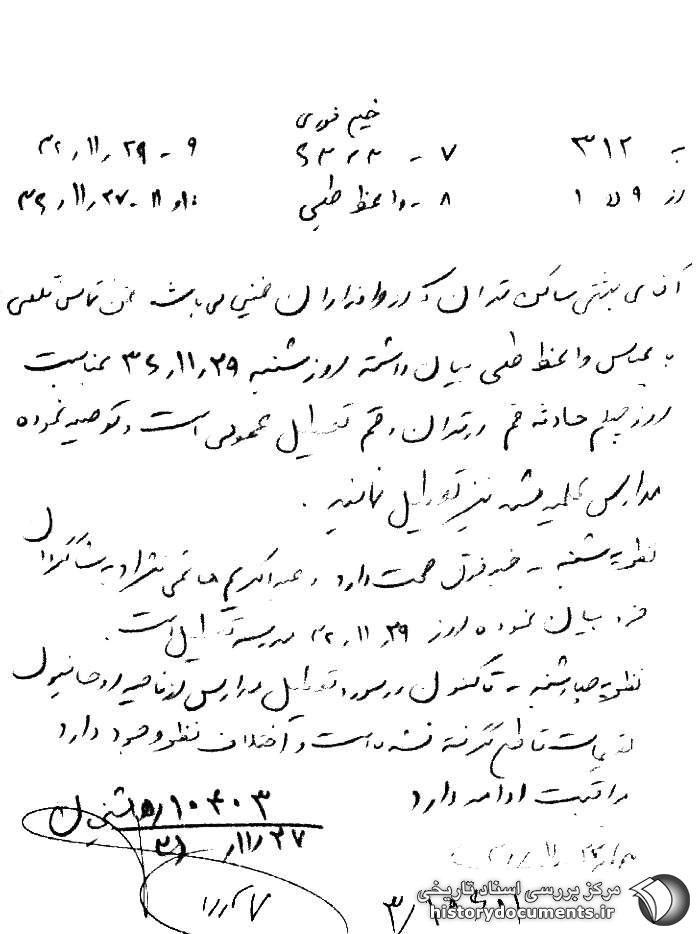 خیلی فوری
به ۳۱۲ ۷ - ۹ - ۲۹ر۱۱ر
از ۹ ۱ ۸ - واعظ طبسی ۱۰و۱۱ - ۲۷ر۱۱ر۳۶
آقای ساکن تهران که از وفاداران خمینی می باشد ضمن تماس تلفنی
با عباس واعظ طبسی بیان داشته روز شنبه ۲۹ر۱۱ر۳۶ بمناسبت
روز چهلم حادثه قم در تهران و قم تعطیل عمومی است و توصیه نموده
مدارس علمیه مشهد نیز تعطیل نمایند.
نظریه شنبه - خبر فوق صحت دارد و عبدالکریم هاشمی نژاد به شاگردان
خود بیان نموده روز ۲۹ر۱۱ر مدرسه تعطیل است.
نظریه چهارشنبه - تاکنون در مورد تعطیل مدارس از ناحیه روحانیون
تصمیمات قاطع گرفته نشده است و اختلاف نظر وجود دارد
مراقبت ادامه دارد
۱۰۴۰۳
۲۷ر۱۱ر
مرکز بررسی اسناد تاریخی
historydocuments.ir